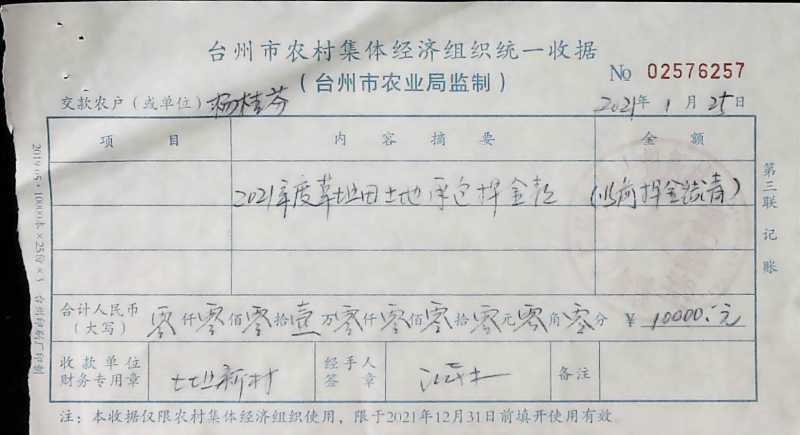 台州市农村集体经济组织统一收据
(台州市农业局监制)
No 02576257
交款农户(或单位) 杨桂芬 2021年1月25日
项目 内容摘要 金额
2021年度草业田土地承包押金款 (以前押金结清)
合计人民币(大写) 零仟零佰零拾壹万零仟零佰零拾零元零角零分 ¥10000.元
收款单位财务专用章 经手人签章 备注
注:本收据仅限农村集体经济组织使用,限于2021年12月31日前填开使用有效
第三联 记账